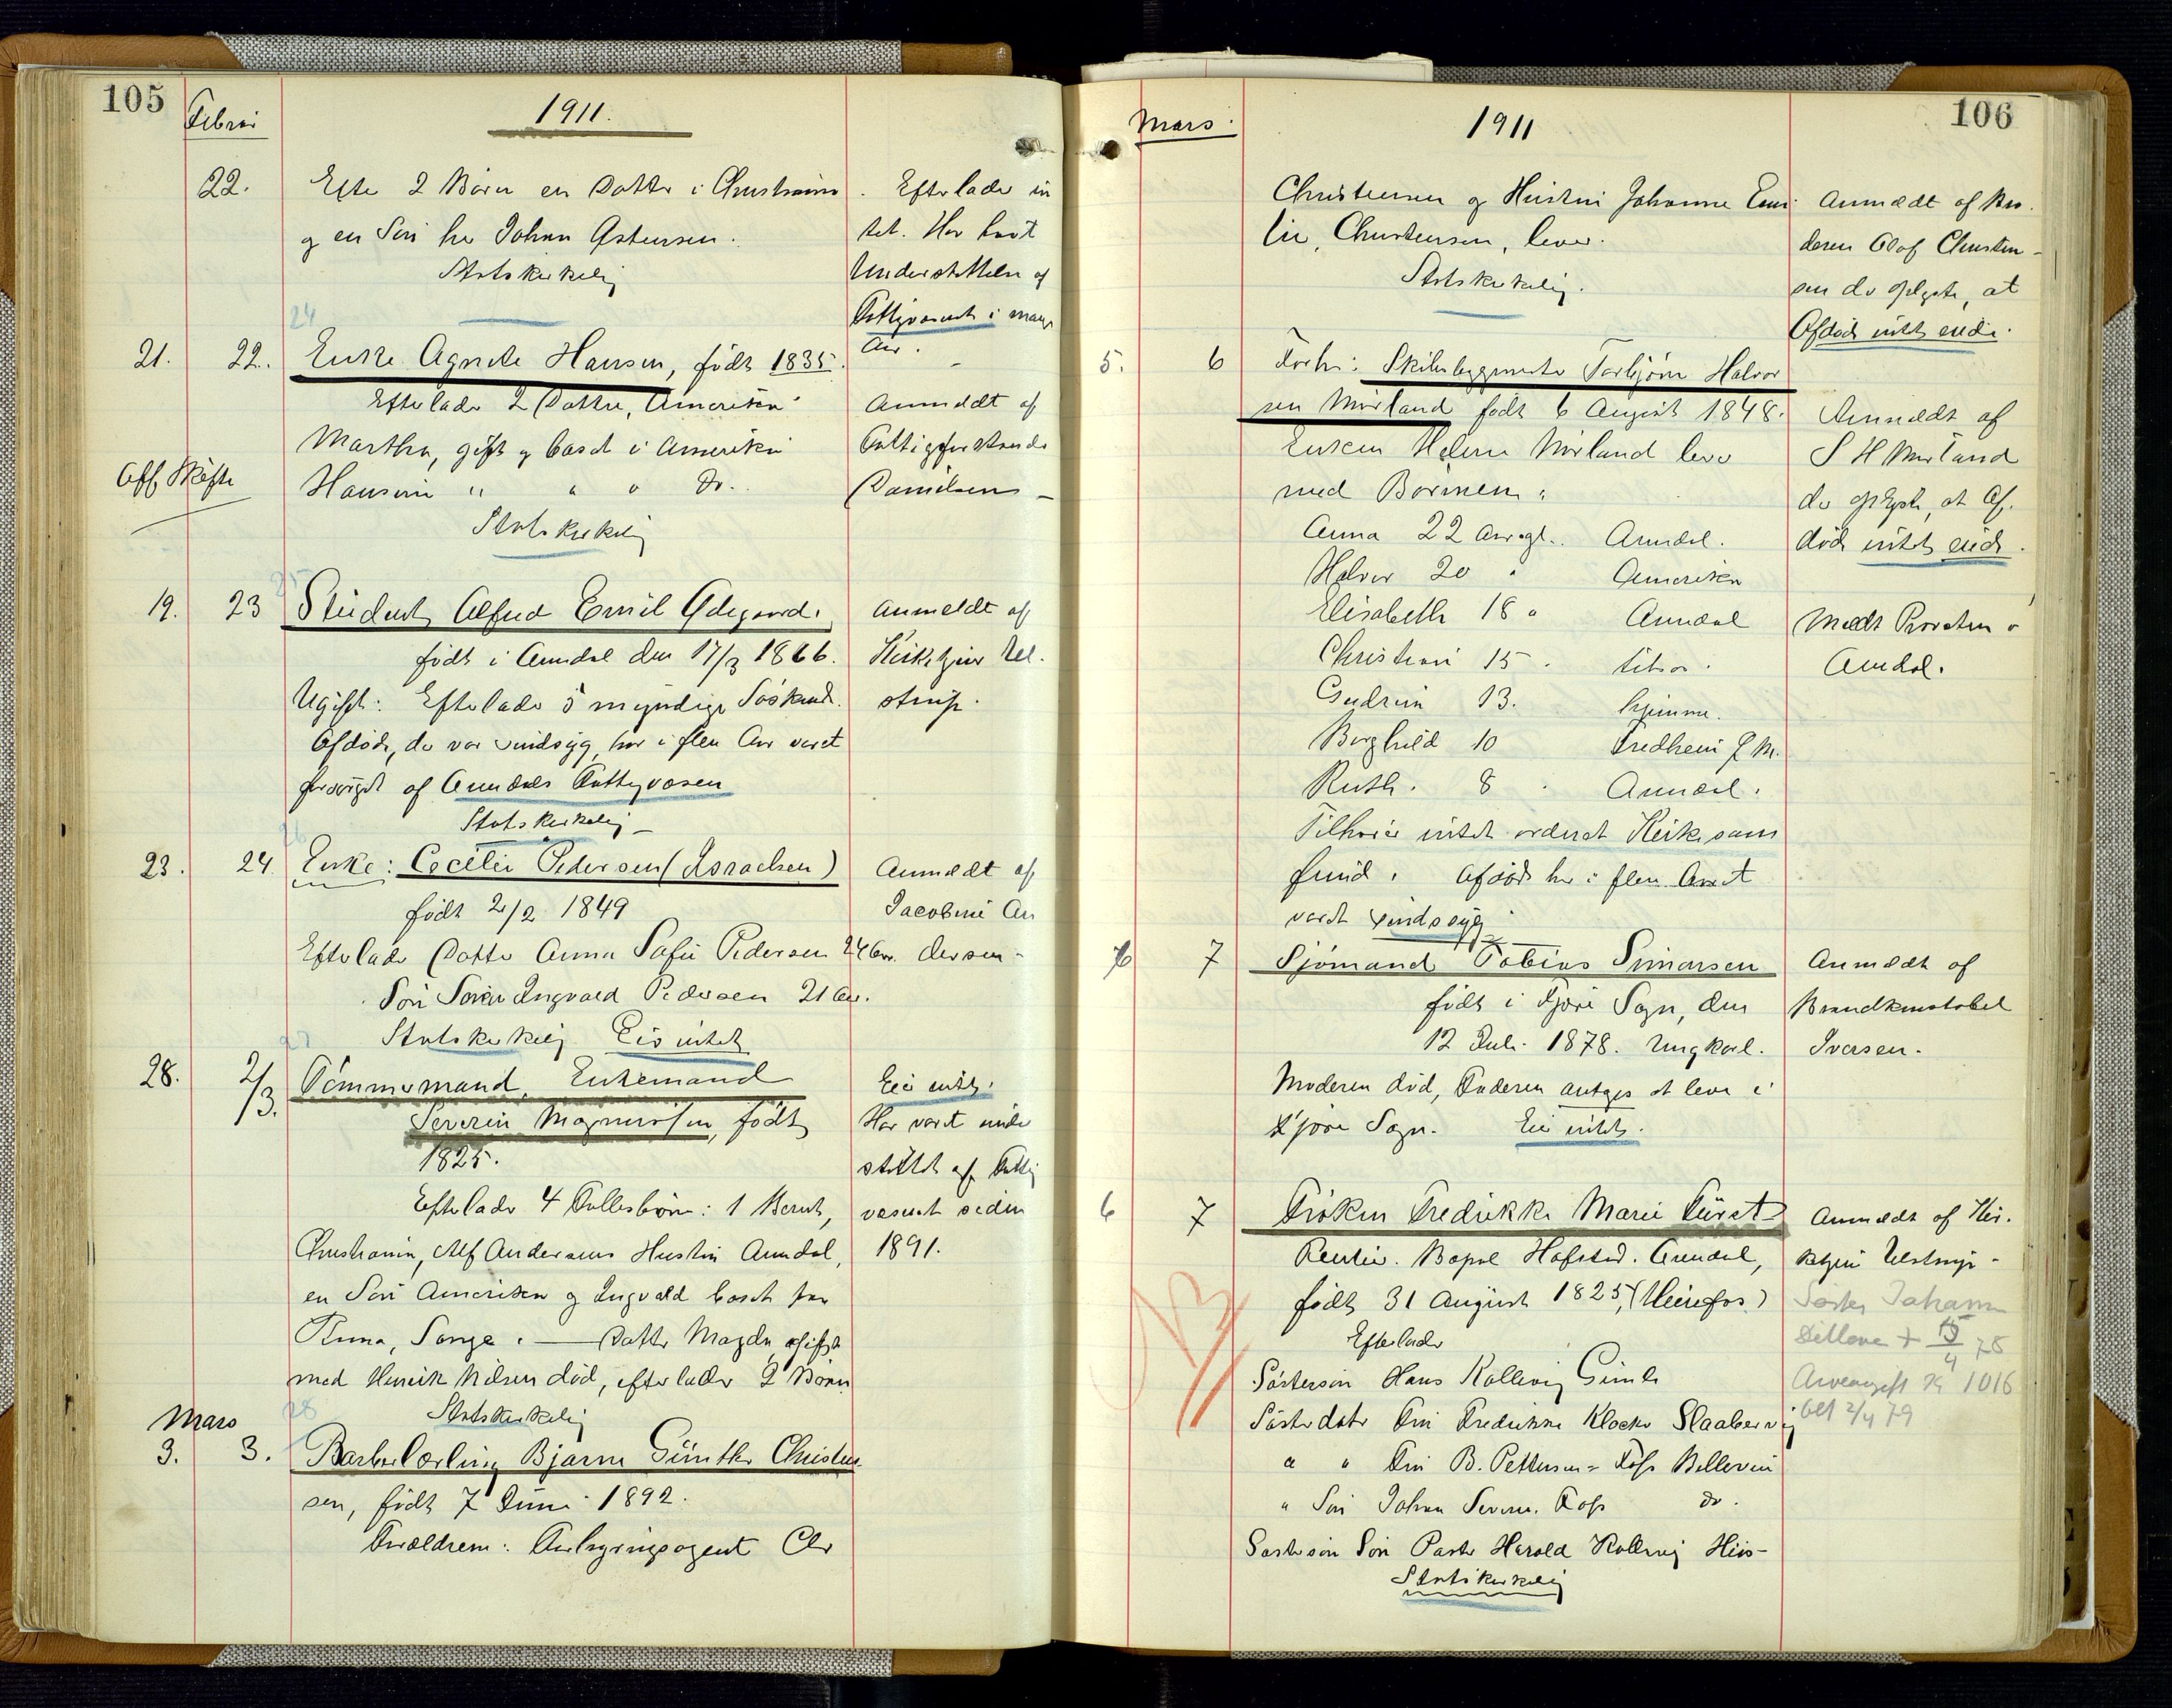 105
Februar
1911.
22.
Efte 2 Børn en Datter i Christiania
og en Søn her Johan Østensen.
Statskirkelig
Efterlader in
tet. Har havt
Understøttelse af
Fattigvæsnet i mange
Aar.
24
21. 22. Enke Agnete Hansen, født 1835.
Efterlader 2 Døttre, Amerika
Martha, gift og bosat i Amerika
Hansine " " " Do.
Statskirkelig
Off Skifte
Anmeldt af
Fattigforstander
Danielsen
25
19. 23 Student Alfred Emil Ødegaard.
født i Arendal den 17/3 1866.
Ugift. Efterlader 5 myndige Søskende.
Afdøde, der var sindsyg, har i flere Aar været
forsørget af Arendals Fattigvæsen
Statskirkelig
Anmeldt af
Kirketjener Ul-
strup.
26
23. 24. Enke: Cecilie Pedersen (Israelsen)
født 2/2 1849
Efterlader Datter Anna Sofie Pedersen 24 Aar.
Søn Søren Ingvald Pedersen 21 Aar.
Statskirkelig Eier intet
Anmeldt af
Jacobine An
dersen
27
28. 2/3. Tømmermand, Enkemand
Severin Magnussen, født
1825.
Efterlader 4 Fællesbørn: 1 Bernt,
Christiania, Alf Andersens Hustru Arendal,
en Søn Amerika og Ingvald bosat paa
Songe. — Datter Magda, gift
med Henrik Nilsen død, efterlader 2 Børn
Statskirkelig
Eier intet.
Har været under
støttet af Fattig
væsenet siden
1891.
28
Mars
3. 3. Barberlærling Bjarne Günther Christen
sen, født 7 Juni 1892.
Forældrene: Forhyringsagent Chr
106
Mars.
1911
Christensen og Hustru Johanne Emi
lie Christensen, lever.
Statskirkelig.
Anmeldt af Bro
deren Olaf Christen-
sen der oplyste, at
Afdøde intet eiede.
5. 6 Forhv: Skibsbyggmester Torbjørn Halvor
sen Mørland født 6 August 1848.
Enken Helene Mørland lever
med Børnene:
Anna 22 Aar gl. Arendal.
Halvor 20 " Amerika
Elisabeth 18 " Arendal
Christian 15 " tilsøs.
Gudrun 13. hjemme.
Borghild 10 Fredheim
Ruth. 8 Arendal.
Tilhører intet ordnet Kirkesam
fund. Afdøde har i flere Aar
været sindssyg
Anmeldt af
S H Mørland
der oplyste, at Af
døde intet eiede.
Meldt Provsten i
Arendal.
6 7 Sjømand Tobias Simonsen
født i Fjære Sogn, den
12 Juli 1878. Ungkarl.
Moderen død, Faderen antages at leve i
Fjære Sogn. Eier intet.
Anmeldt af
Brandkonstabel
Iversen.
6 7 Frøken Fredrikke Marie Fürst
Rentier. Bopæl Hafsted. Arendal,
født 31 August 1825,
Efterlader
Søstersøn Hans Kallevig Gimle
Søsterdatr Fru Fredrikke Klocker Slaabervig
" " Fru B. Pettersen Foss Bellevue
" Søn Johan Severin Foss do.
Søstersøns Søn Pastor Harald Kallevig Hiis-
Statskirkelig
Anmeldt af Kir-
ketjener Ulstrup
Søster Johanne
Ditlove + 15/4 78
Arveavgift Kr 1016
bet 2/4 79